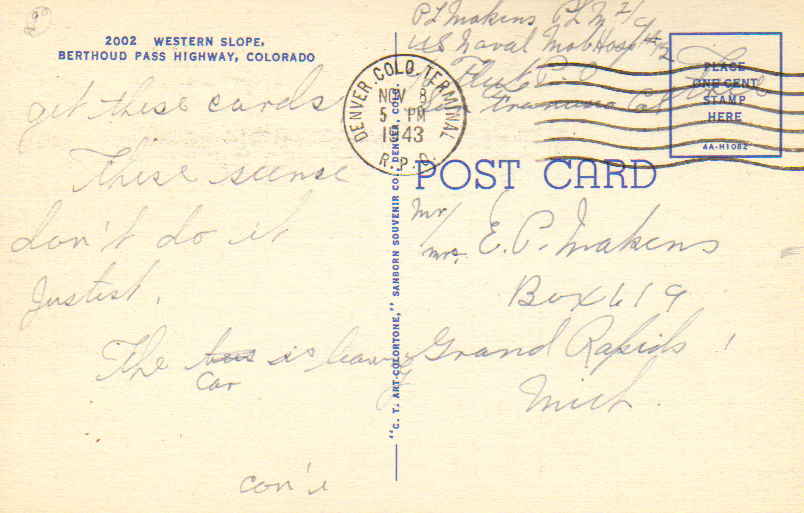 2002 WESTERN SLOPE,
BERTHOUD PASS HIGHWAY, COLORADO
get these cards
These scense
don't do it
Justist.
The bus is leaving
Car
con't
P L Makens Ph M 2/c
US Naval Mob Hosp #2
Fleet P. O.
San Francisco Cal
Free
DENVER, COLO. TERMINAL
NOV 8
5 PM
1943
R.P.O.
PLACE
ONE CENT
STAMP
HERE
4A-H1082
POST CARD
"C. T. ART-COLORTONE," SANBORN SOUVENIR CO., DENVER, COLO.
Mr/
mrs. E. P. Makens
Box 619
Grand Rapids
Mich.